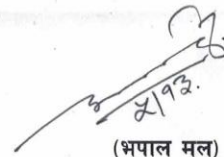 ५/१२.
(भपाल मल)